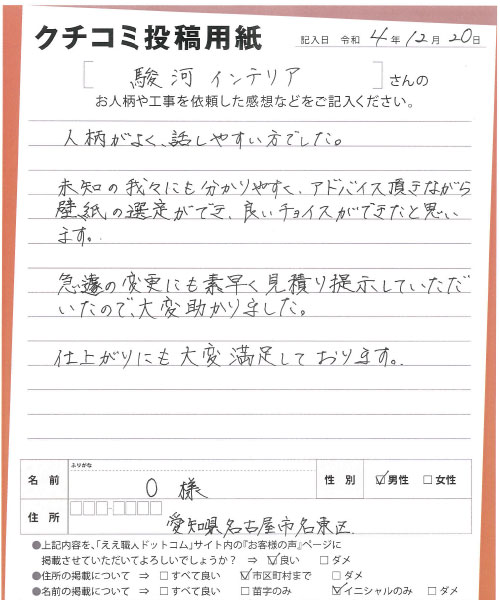 クチコミ投稿用紙
記入日 令和 4年12月20日
[駿河インテリア]さんの
お人柄や工事を依頼した感想などをご記入ください。
人柄がよく、話しやすい方でした。
未知の我々にも分かりやすく、アドバイス頂きながら
壁紙の選定ができ、良いチョイスができたと思い
ます。
急遽の変更にも素早く見積り提示していただ
いたので、大変助かりました。
仕上がりにも大変満足しております。
ふりがな
名前 O 様 性別 ☑男性 □女性
住所 □□□-□□□□
愛知県名古屋市名東区
●上記内容を、「ええ職人ドットコム」サイト内の『お客様の声』ページに
掲載させていただいてよろしいでしょうか? ⇒ ☑良い □ダメ
●住所の掲載について ⇒ □すべて良い ☑市区町村まで □ダメ
●名前の掲載について ⇒ □すべて良い □苗字のみ ☑イニシャルのみ □ダメ